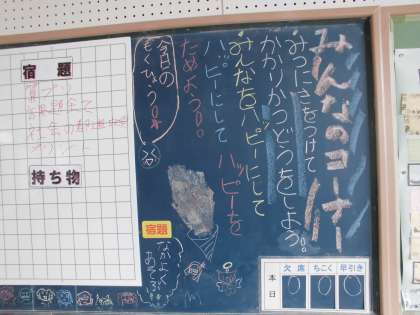 みんなのコーナー!!
みつにきをつけて
かかりかつどうをしよう。
みんなもハッピーにして
ハッピーにして ハッピーを
ためよう。
今日の
もくひょう
宿題
算プリ
持ち物
宿題
なかよく
あそぶ
本日
欠席
ちこく
早引き
0
0
0